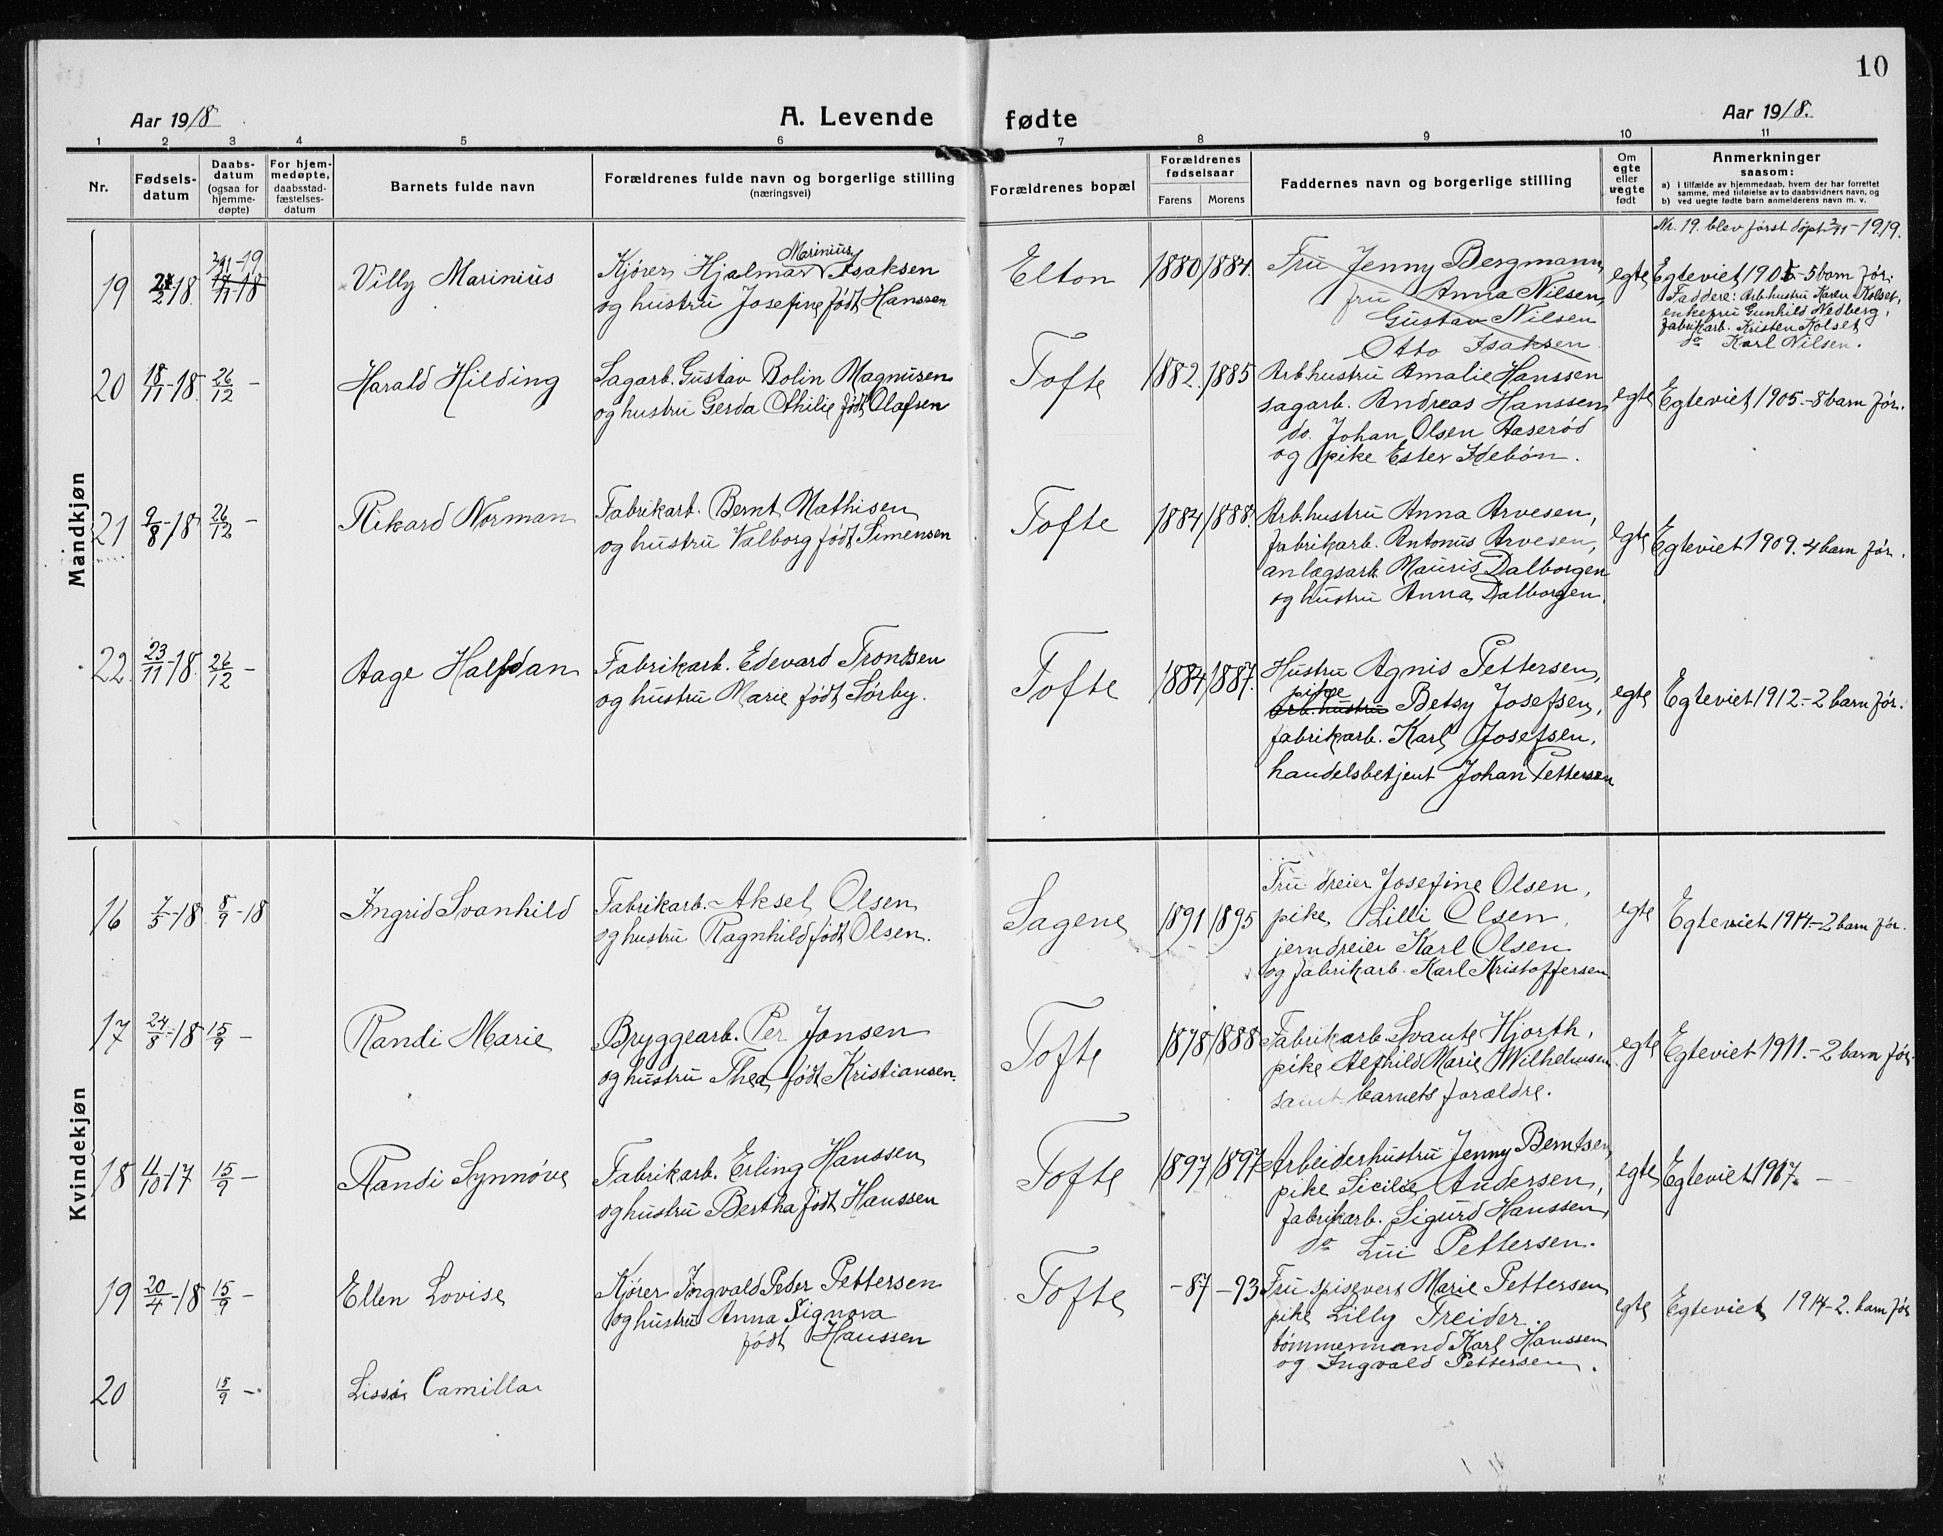 10
Aar 1918
A. Levende fødte
Aar 1918.
1 2 3 4 5 6 7 8 9 10 11
Nr.
Fødsels-
datum
Daabs-
datum
(ogsaa for
hjemme-
døpte)
For hjem-
medøpte,
daabsstad-
fæstelses-
datum
Barnets fulde navn
Forældrenes fulde navn og borgerlige stilling
(næringsvei)
Forældrenes bopæl
Forældrenes
fødselsaar
Farens Morens
Faddernes navn og borgerlige stilling
Om
egte
eller
uegte
født
Anmerkninger
saasom:
a) i tilfælde av hjemmedaab, hvem der har forrettet
samme, med tilføielse av to daabsvidners navn, og
b) ved uegte født barn anmelderens navn m. v.
Mandkjøn
Nr. 19. blev først døpt 2/11-1919.
19
2-18
2/11-19
17/11-18
Villy Marinius
Marinius
Kjører Hjalmar Isaksen
og hustru Josefine født Hanssen
Elton
1880 1884.
Fru Jenny Bergmann,
fru Anna Nilsen,
Gustav Nilsen
Otto Isaksen.
egte
Egteviet 1905-5 barn før.
Faddere: Arb.hustru Karen Kolset,
enkefru Gunhild Nedberg,
fabrikarb. Kristen Kolset
do Karl Nilsen.
20
18/11-18.
26/12 -
Harald Hilding
Sagarb. Gustav Bolin Magnusen
og hustru Gerda Othilie født Olafsen
Tofte
1882. 1885
Arb.hustru Amalie Hanssen
sagarb. Andreas Hanssen,
do. Johan Olsen Aaserød
og pike Ester Idebøn.
egte
Egteviet 1905.-8 barn før.
21
9/8-18
26/12 -
Rikard Norman
Fabrikarb. Bernt Mathisen
og hustru Valborg født Simensen
Tofte
1884 1888.
Arb.hustru Anna Arvesen,
fabrikarb. Antonus Arvesen,
anlægsarb. Mauris Dalborgen
og hustru Anna Dalborgen.
egte
Egteviet 1909. 4 barn før.
22.
23/11-18.
26/12 -
Aage Halfdan
Fabrikarb. Edevard Trondsen
og hustru Marie født Sørby.
Tofte
1884 1887.
Hustru Agnis Pettersen,
pike
arb.hustru Betsy Josefsen,
fabrikarb. Karl Josefsen,
handelsbetjent Johan Pettersen
egte
Egteviet 1912.-2 barn før.
Kvindekjøn
16
7/5-18.
8/9-18
Ingrid Svanhild
Fabrikarb. Aksel Olsen
og hustru Ragnhild født Olsen.
Sagene
1891 1895
Fru dreier Josefine Olsen,
pike Lilli Olsen,
jerndreier Karl Olsen
og fabrikarb. Karl Kristoffersen
egte
Egteviet 1914.-2 barn før.
17
24/8-18
15/9 -
Randi Marie
Bryggearb. Per Jonsen
og hustru Thea født Kristiansen.
Tofte
1878 1888
Fabrikarb. Svante Hjorth,
pike Alfhild Marie Wilhelmsen
samt barnets forældre.
egte
Egteviet 1911.-2 barn før.
18
4/10-17
15/9 -
Randi Synnøve
Fabrikarb. Erling Hanssen
og hustru Bertha født Hanssen
Tofte
1897 1897
Arbeiderhustru Jenny Berntsen,
pike Sicilie Andersen,
fabrikarb. Sigurd Hanssen,
do Lui Pettersen.
egte
Egteviet 1917. -
19
20/4-18
15/9 -
Ellen Lovise
Kjører Ingvald Peder Pettersen
og hustru Anna Signora
født Hanssen
Tofte
-87 -93
Fru spisevert Marie Pettersen
pike Lilly Treider.
tømmermand Karl Hanssen
og Ingvald Pettersen.
egte
Egteviet 1914-2. barn før
20
15/9 -
Camilla